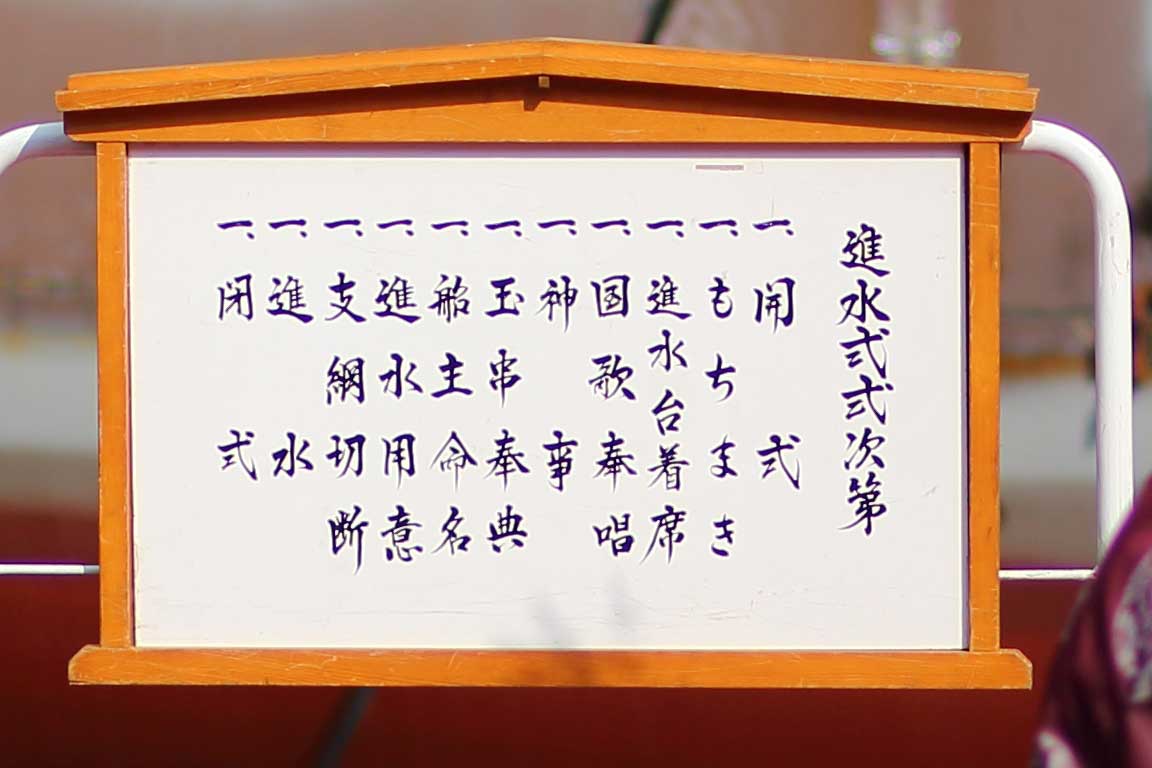 進水式式次第
一、開式
一、もちまき
一、進水台着席
一、国歌奉唱
一、神事
一、玉串奉典
一、船主命名
一、進水用意
一、支綱切断
一、進水
一、閉式